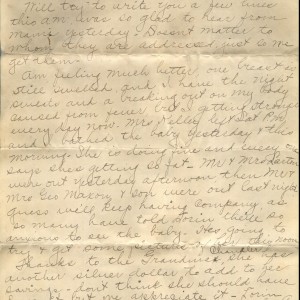 Will try to write you a few lines
this am. was so glad to hear from
mama yesterday. Doesn't matter to
whom they are addressed, just so we
get them.
Am feeling much better one breast is
still swelled and I have the night
sweats and a breaking out on my body
caused from fever but I'm getting stronger
every day now. Mrs Kelley left Sat Pm
and I bathed the baby yesterday & this
morning. She is doing fine and every one
says she's getting so fat. Mr & Mrs
were out yesterday afternoon then Mr &
Mrs Geo Maxon & son were out last night
guess will keep having company, as
so many have told they're
anxious to see the baby. going to
try & get some pictures
Thanks to the Grandma, she has
another silver dollar to add to her
savings - don't think she should have
but we appreciate it.